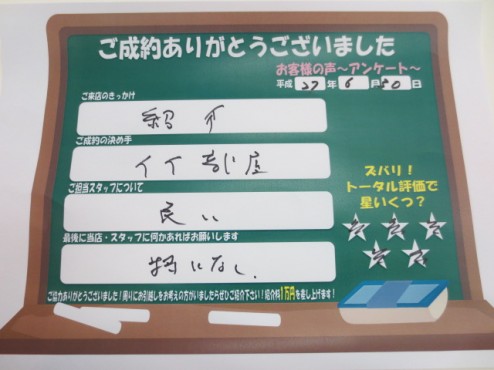 ご成約ありがとうございました
お客様の声～アンケート～
平成 27 年 6 月 30 日
ご来店のきっかけ
紹介
ご成約の決め手
イイ部屋
ご担当スタッフについて
良い
最後に当店・スタッフに何かあればお願いします
特になし.
ズバリ!
トータル評価で
星いくつ?
ご協力ありがとうございました!周りにお引越しをお考えの方がいましたらぜひご紹介下さい!紹介料1万円を差し上げます!